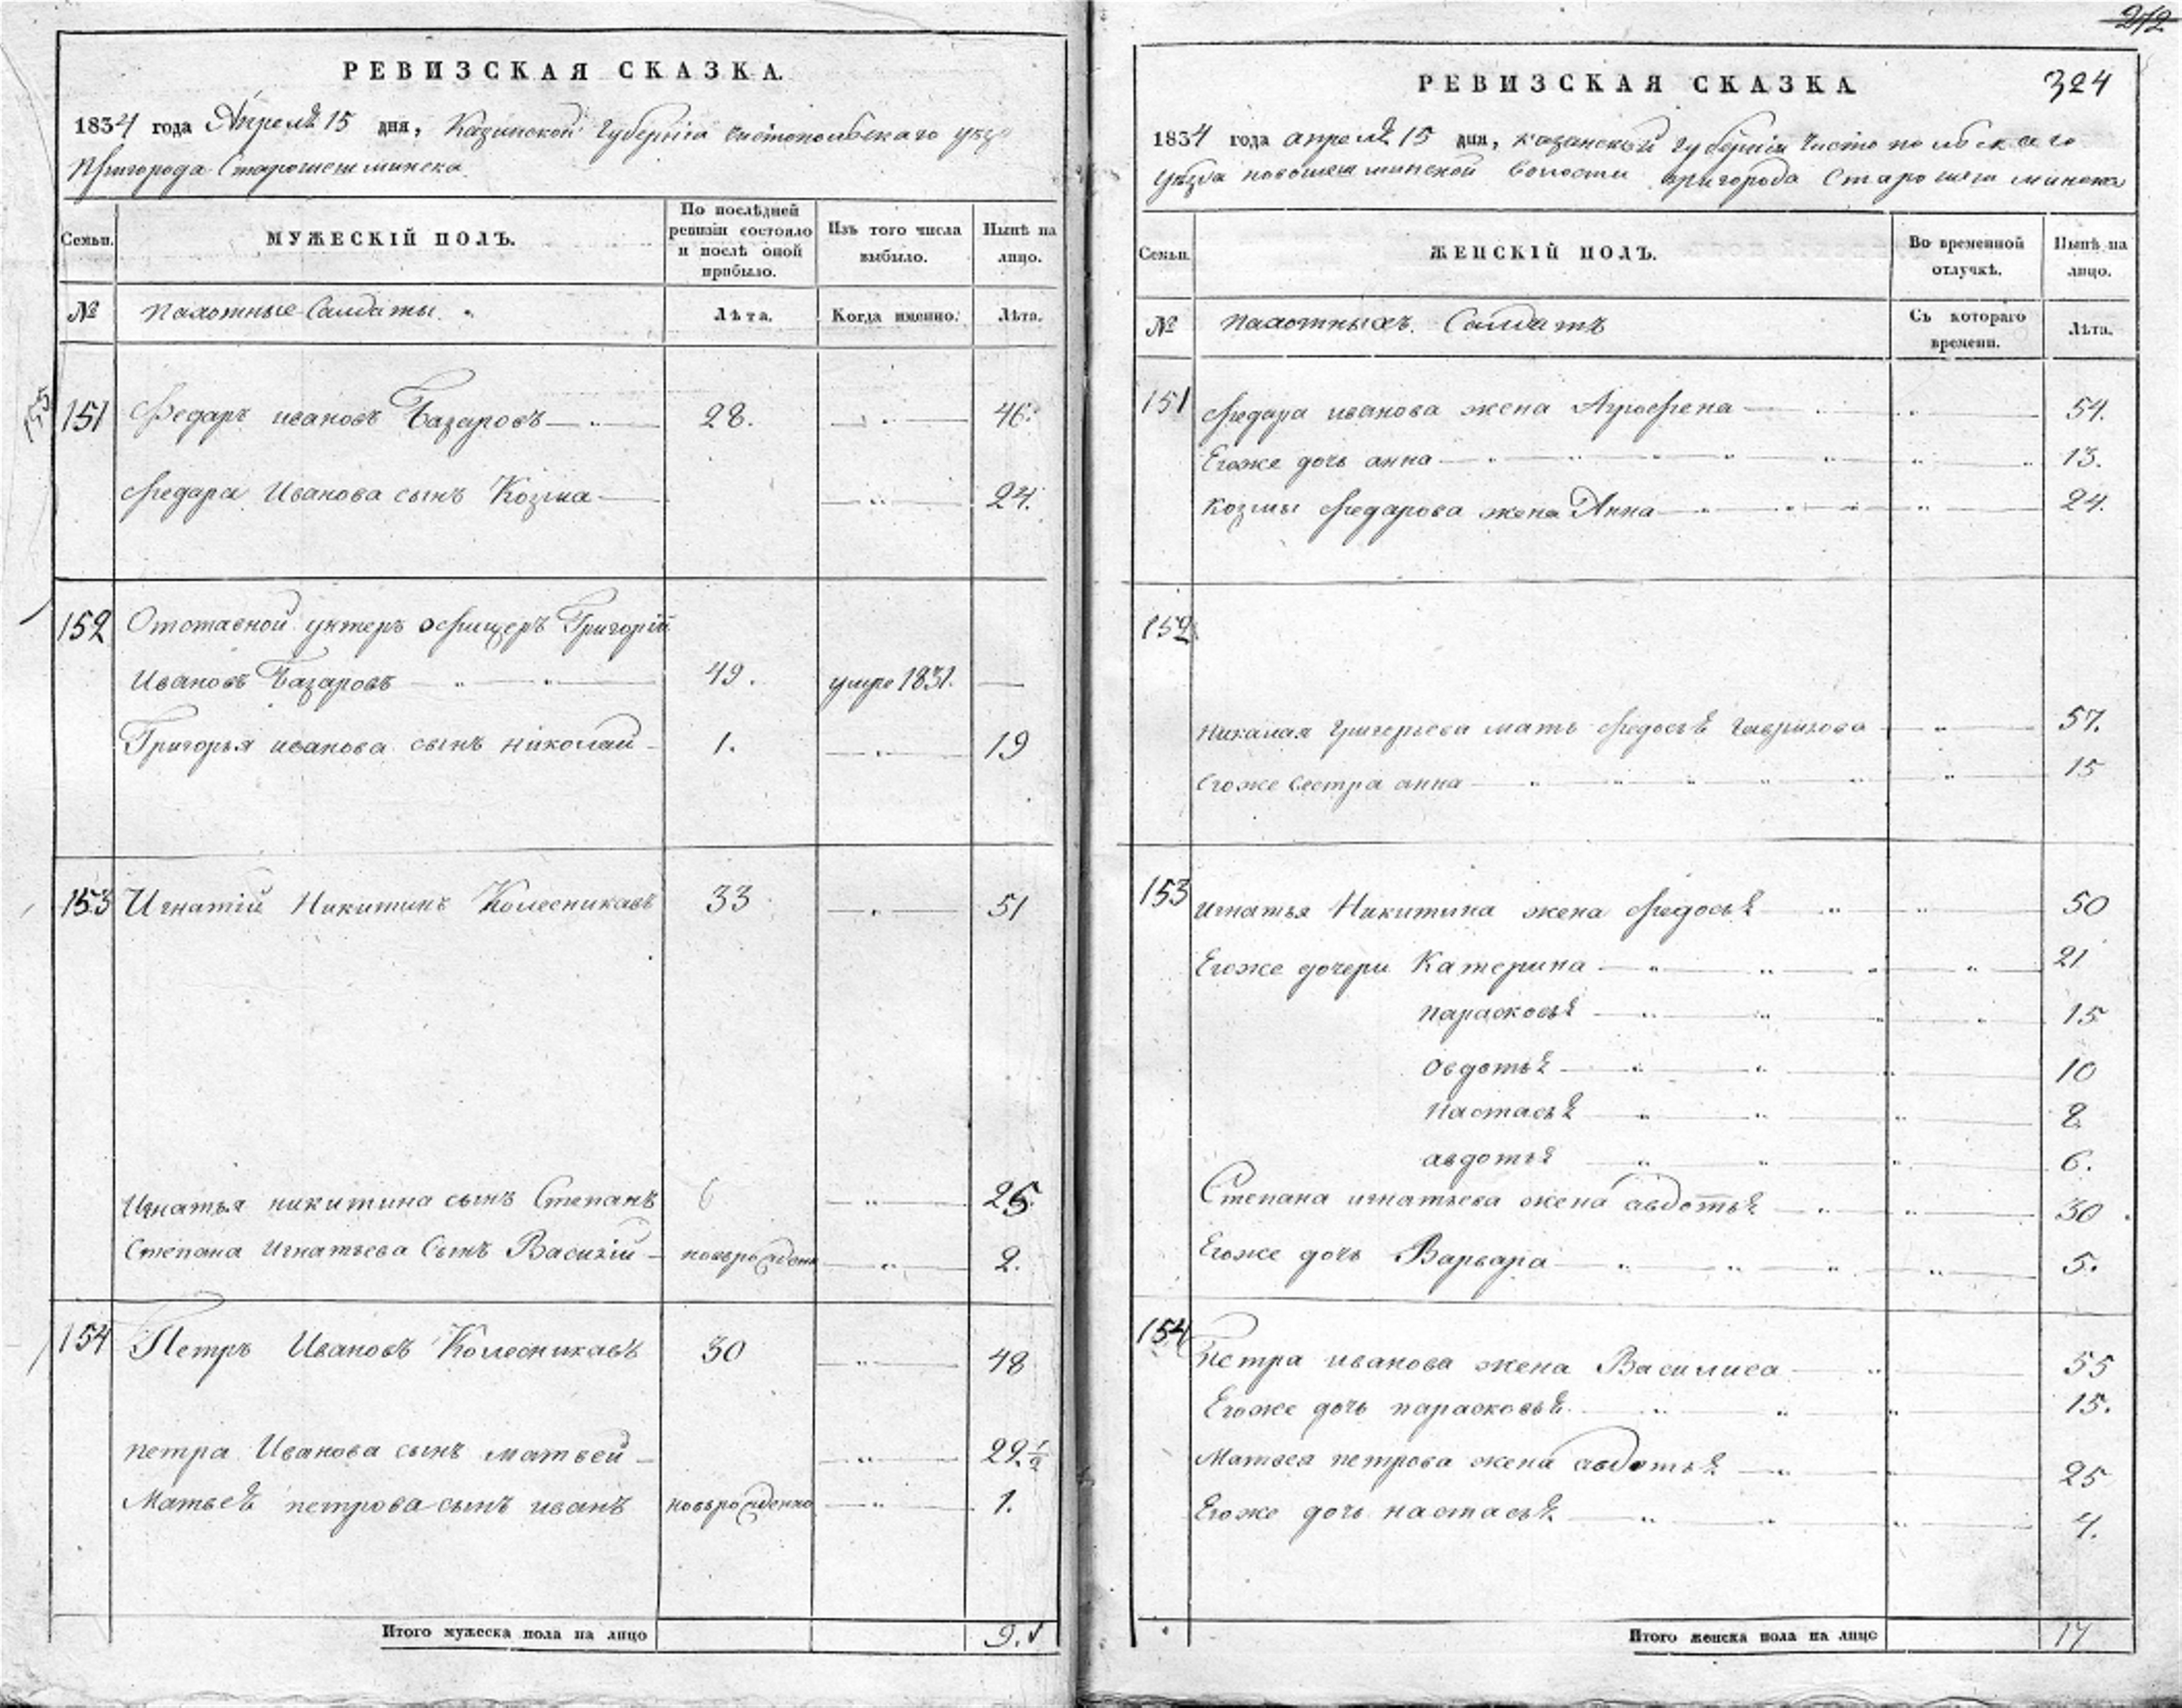 РЕВИЗСКАЯ СКАЗКА.
1834 года Апрелѣ 15 дня, Казанской Губерніи чистопольскаго уез
Пригорода Старошешминска
Семьи.
МУЖЕСКІЙ ПОЛЪ.
По послѣдней ревизіи состояло и послѣ оной прибыло.
Изъ того числа выбыло.
Нынѣ на лицо.
№ Пахотные Солдаты. Лѣта. Когда именно. Лѣта.
155
151 Ѳедаръ ивановъ Базаровъ 28. 46.
Ѳедара Иванова сынъ Козма 24.
152 Отставной унтеръ офицеръ Григорій
Ивановъ Базаровъ 49. умре 1831.
Григорья иванова сынъ николай 1. 19
153 Игнатій Никитинъ Колесникавъ 33 51
Игнатья никитина сынъ Степанъ 6 25.
Степана Игнатьева Сынъ Василій новорожденн 2.
154 Петръ Ивановъ Колесникавъ 30 48
петра Иванова сынъ матвей 29 1/2
Матвеѣ петрова сынъ иванъ новорожденно 1.
Итого мужеска пола на лицо 9.
272
РЕВИЗСКАЯ СКАЗКА 324
1834 года апрелѣ 15 дня, казанской губерніи Чистопольскаго
уѣзда новошешминской волости пригорода Старошешминска
Семьи.
ЖЕНСКІЙ ПОЛЪ.
Во временной отлучкѣ.
Нынѣ на лицо.
№ пахотныхъ Солдатъ Съ котораго времени. Лѣта.
151 Ѳедара иванова жена Агрофена 54.
Егоже дочь анна 13.
козмы Ѳедарова жена Анна 24.
152
Николая Григорьева мать Ѳедосьѣ Гаврилова 57.
егоже сестра анна 15
153 игнатья Никитина жена Ѳедосьѣ 50
Егоже дочери Катерина 21
парасковьѣ 15
овдотьѣ 10
Настасьѣ 8
авдотьѣ 6.
Степана игнатьева жена авдотьѣ 30
Егоже дочь Варвара 5.
154 петра иванова жена Василиса 55
Егоже дочь парасковьѣ 15.
Матвея петрова жена авдотьѣ 25
Егоже дочь настасьѣ 4.
Итого женска пола на лицо 17